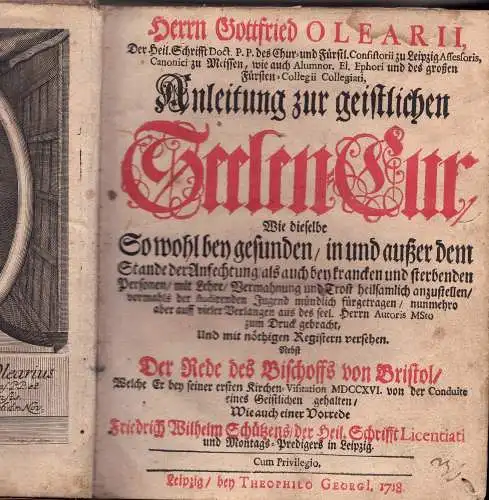 Herrn Gottfried OLEARII,
Der Heil. Schrifft Doct. P. P. des Chur- und Fürstl. Consistorii zu Leipzig Assessoris,
Canonici zu Meissen, wie auch Alumnor. El. Ephori und des großen
Fürsten-Collegii Collegiati,
Anleitung zur geistlichen
Seelen-Cur,
Wie dieselbe
So wohl bey gesunden / in und außer dem
Stande der Anfechtung als auch bey krancken und sterbenden
Personen / mit Lehre / Vermahnung und Trost heilsamlich anzustellen /
vormahls der studirenden Jugend mündlich fürgetragen / nunmehro
aber auff vieler Verlangen aus des seel. Herrn Autoris MSto
zum Druck gebracht,
Und mit nöthigen Registern versehen.
Nebst
Der Rede des Bischoffs von Bristol /
Welche Er bey seiner ersten Kirchen-Visitation MDCCXVI. von der Conduite
eines Geistlichen gehalten /
Wie auch einer Vorrede
Friedrich Wilhelm Schützens / der Heil. Schrifft Licentiati
und Montags-Predigers in Leipzig.
Cum Privilegio.
Leipzig / bey THEOPHILO GEORGI, 1718
Olearius